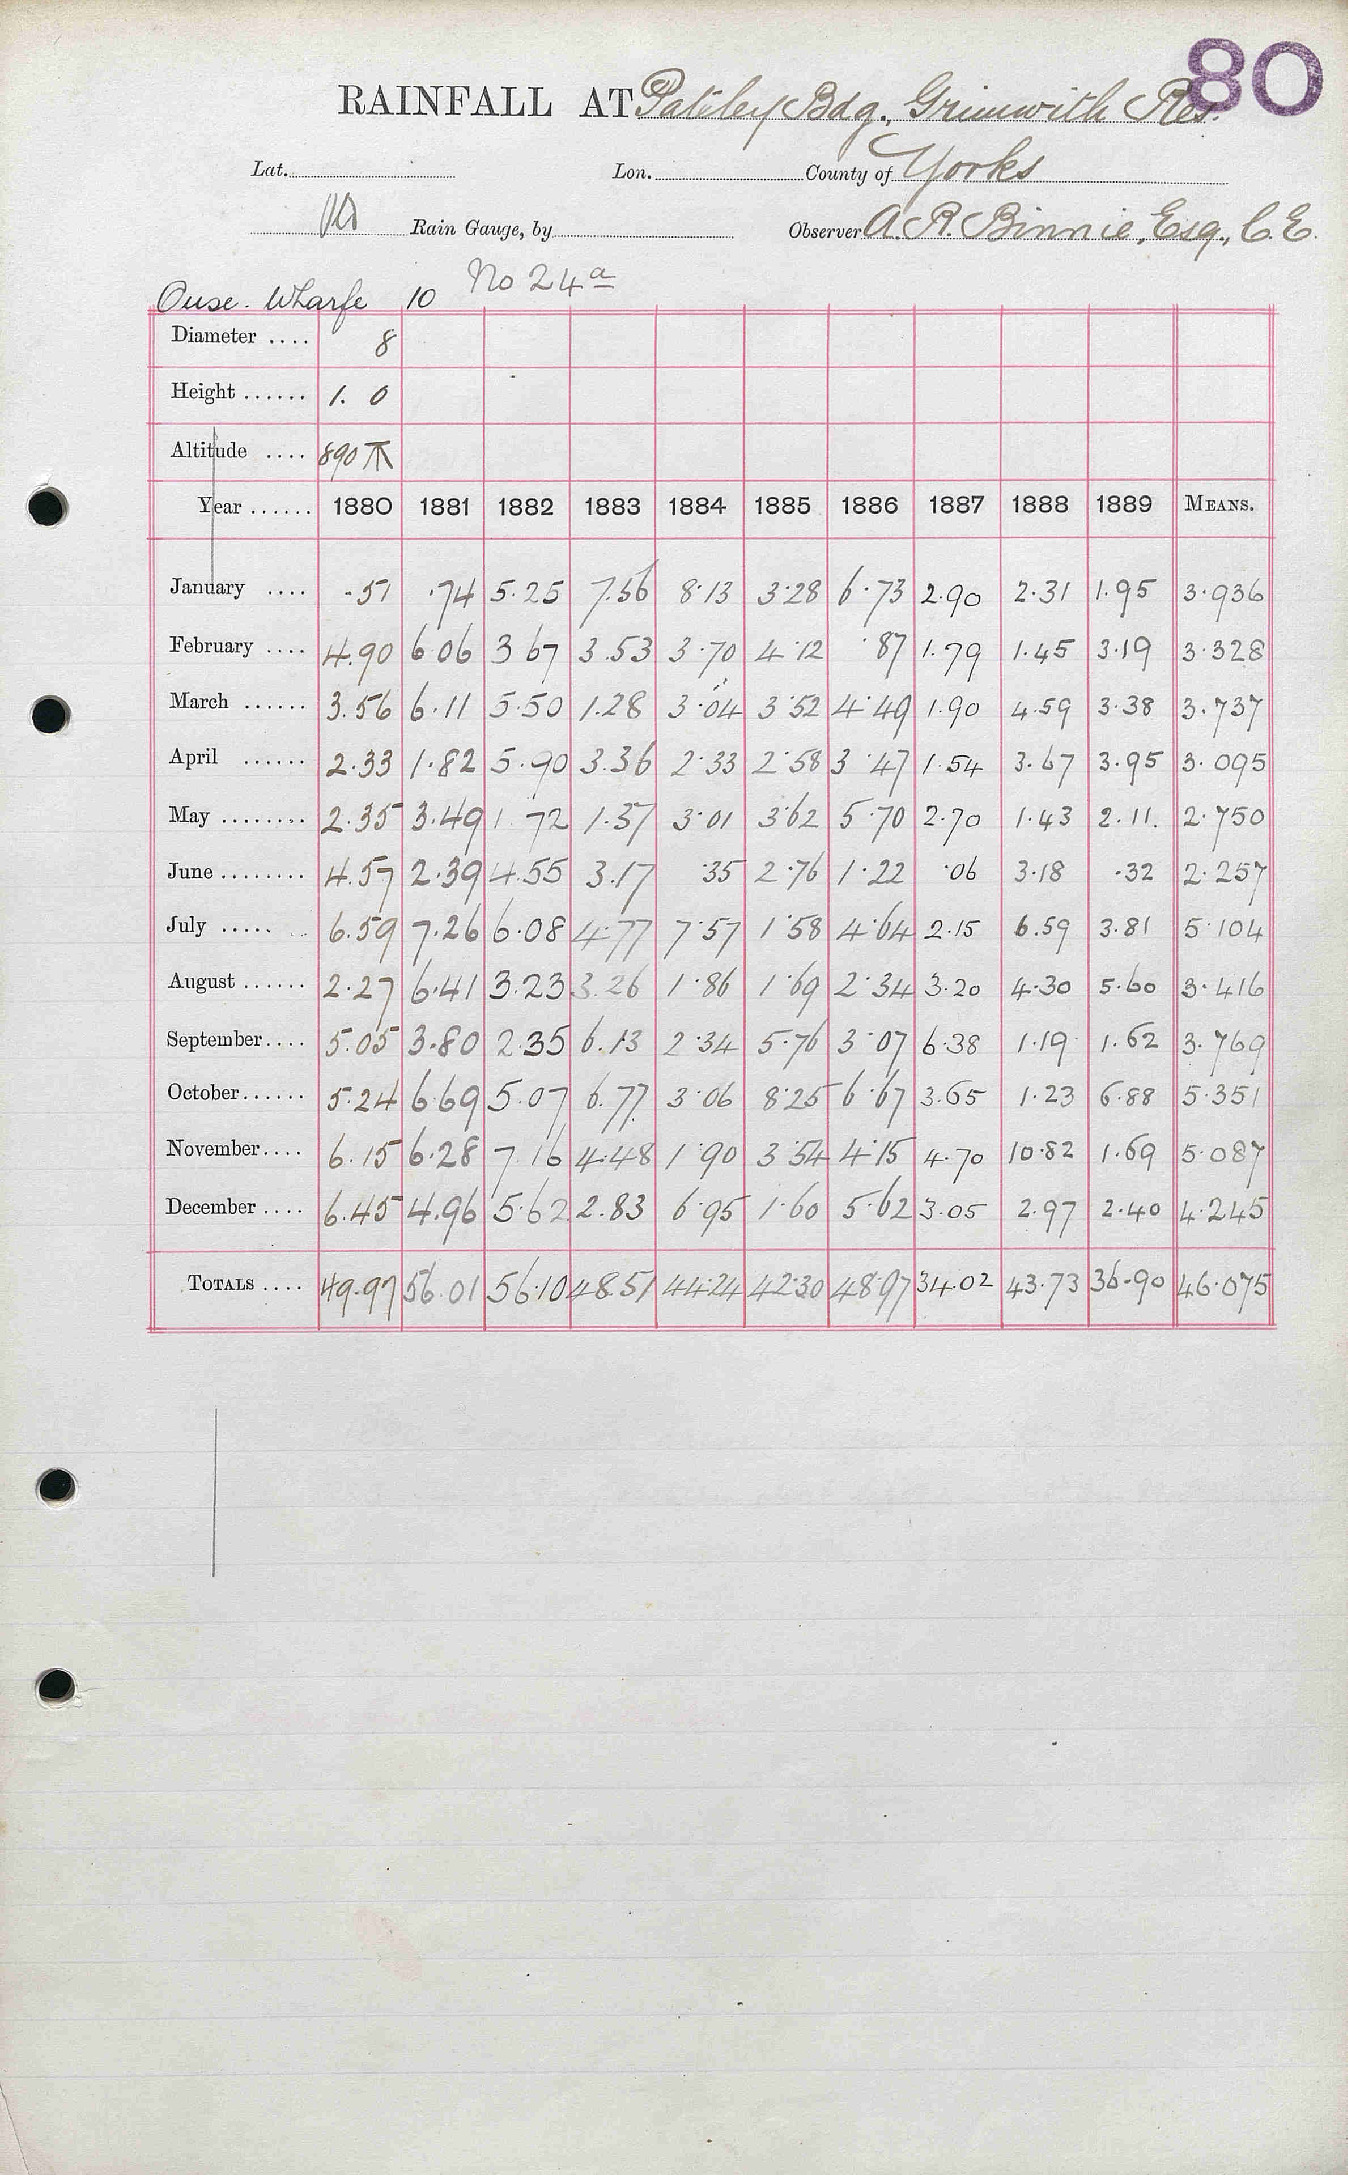 80
RAINFALL AT Pateley Bdg., Grimwith Res.
Lat. Lon. County of Yorks
Rain Gauge, by Observer A. R. Binnie, Esq., C.E.
Ouse. Wharfe 10 No 24a
Diameter .... 8
Height ...... 1. 0
Altitude .... 890
Year ...... 1880 1881 1882 1883 1884 1885 1886 1887 1888 1889 MEANS.
January .... .51 .74 5.25 7.56 8.13 3.28 6.73 2.90 2.31 1.95 3.936
February .... 4.90 6 06 3 67 3.53 3.70 4.12 .87 1.79 1.45 3.19 3.328
March ...... 3.56 6.11 5.50 1.28 3.04 3.52 4.49 1.90 4.59 3.38 3.737
April ...... 2.33 1.82 5.90 3.36 2.33 2.58 3.47 1.54 3.67 3.95 3.095
May ........ 2.35 3.49 1.72 1.37 3.01 3.62 5.70 2.70 1.43 2.11. 2.750
June ........ 4.57 2.39 4.55 3.17 .35 2.76 1.22 .06 3.18 .32 2.257
July ..... 6.59 7.26 6.08 4.77 7.57 1.58 4.64 2.15 6.59 3.81 5.104
August ...... 2.27 6.41 3.23 3.26 1.86 1.69 2.34 3.20 4.30 5.60 3.416
September.... 5.05 3.80 2.35 6.13 2.34 5.76 3.07 6.38 1.19 1.62 3.769
October...... 5.24 6.69 5.07 6.77 3.06 8.25 6.67 3.65 1.23 6.88 5.351
November.... 6.15 6.28 7.16 4.48 1.90 3.54 4.15 4.70 10.82 1.69 5.087
December .... 6.45 4.96 5.62 2.83 6.95 1.60 5.62 3.05 2.97 2.40 4.245
TOTALS .... 49.97 56.01 56.10 48.51 44.24 42.30 48.97 34.02 43.73 36.90 46.075